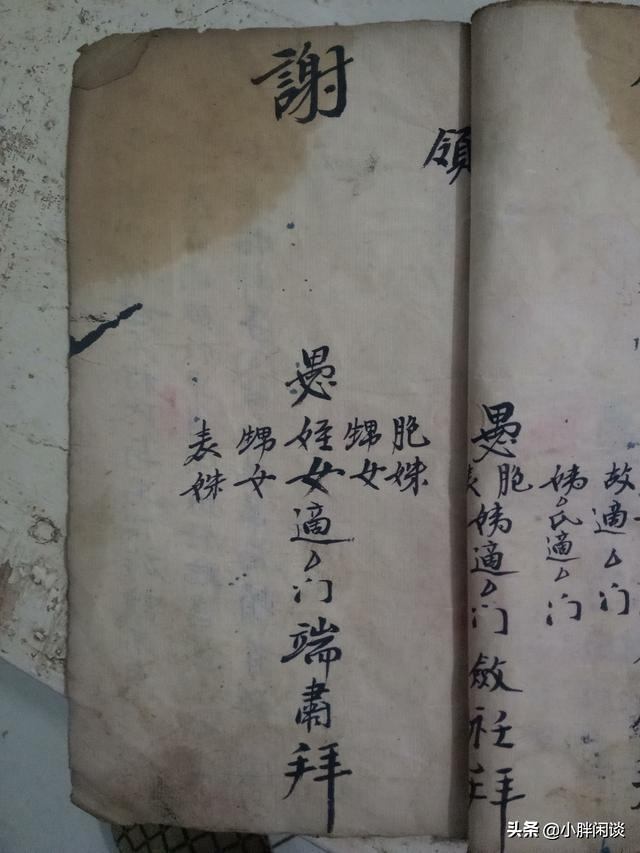 故適△门
姨△氏適△门
愚胞姨適△门斂衽拜
領
胞妹
甥女
謝
愚姪女適△门端肅拜
甥女
表妹
头条 @小胖闲谈